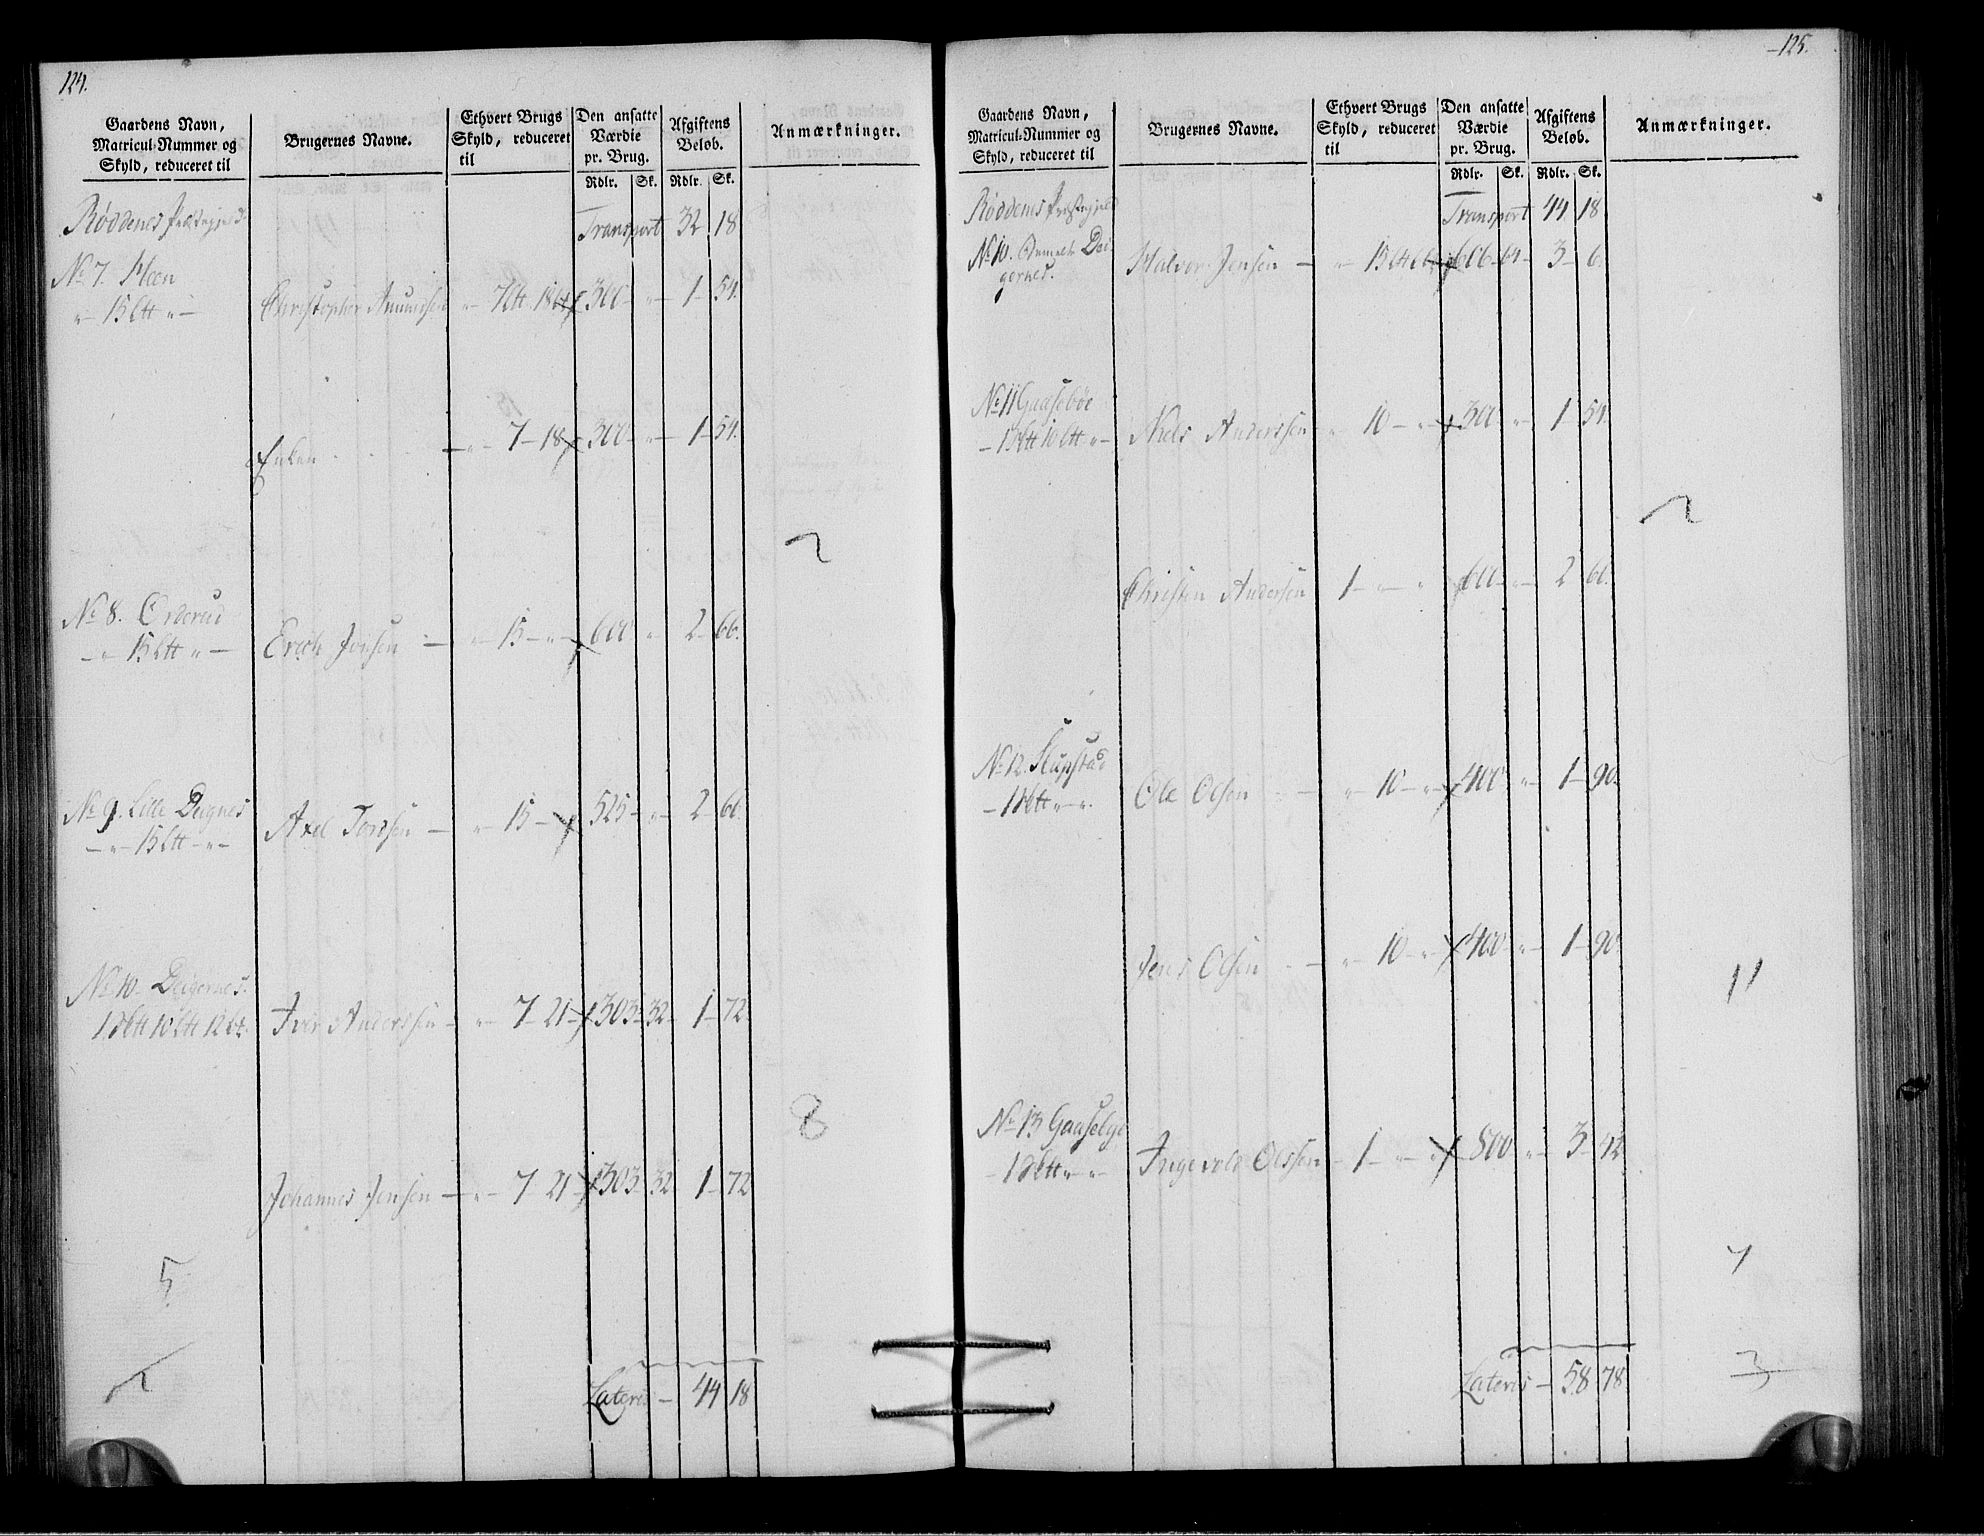 124.
Gaardens Navn, Matricul-Nummer og Skyld, reduceret til | Brugernes Navne. | Ethvert Brugs Skyld, reduceret til | Den ansatte Værdie pr. Brug. Rdlr. Sk. | Afgiftens Beløb. Rdlr. Sk. | Anmærkninger.
Røddenes Præstegield Transport 32 18
No 7. Steen
" 15 Ltt " Christopher Amundsen " 7 Ltt 18 300 " 1 54.
Enken " 7 18 300 " 1 54.
2
No 8. Ørderud
" 15 Ltt " Erich Jonsen " 15 " 600 " 2 66.
No 9. Lille Deignes
" 15 Ltt " Axel Torssen " 15 525 " 2 66.
No 10. Deigernes.
1 10 Ltt 12 Iver Anderssen " 7 21 303 32 1 72
8
Johannes Jensen " 7 21 303 32 1 72
5
Lateris 44 18
125.
Gaardens Navn, Matricul-Nummer og Skyld, reduceret til | Brugernes Navne. | Ethvert Brugs Skyld, reduceret til | Den ansatte Værdie pr. Brug. Rdlr. Sk. | Afgiftens Beløb. Rdlr. Sk. | Anmærkninger.
Røddenes Præstegield Transport 44 18
No 10. Dei-
gernes. Halvor Jensen " 15 606 64 3 6.
No 11 Gaasebøe
1 10 Ltt " Niels Anderssen " 10 " 300 " 1 54.
2
Christen Andersen 1 " " 600 " 2 66.
No 12. Slupstad
1 " " Ole Olsen " 10 " 400 " 1 90.
Jens Olsen " 10 " 400 " 1 90
11
No 13 Gaaselye
1 " " Ingevold Olssen 1 " " 800 " 3 42
Lateris 58 78
3